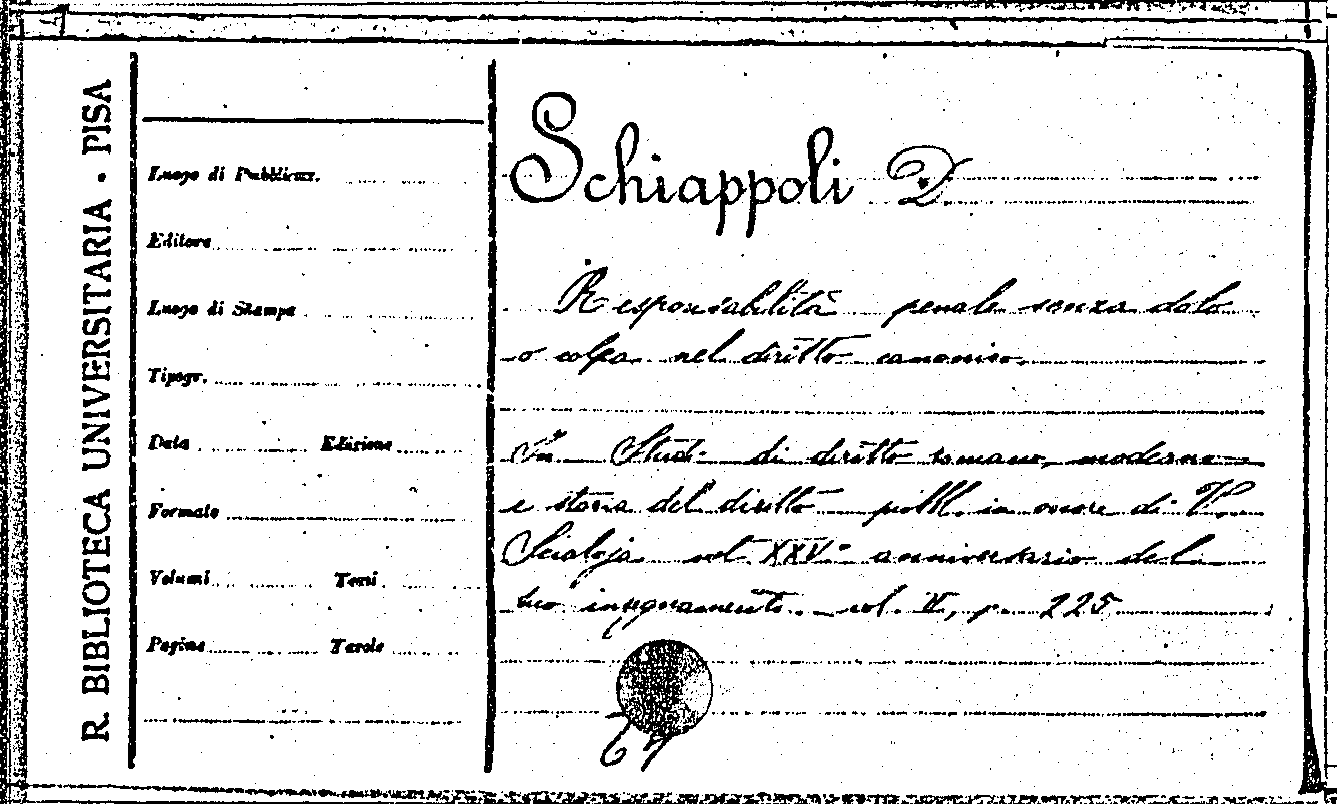 R. BIBLIOTECA UNIVERSITARIA - PISA
Luogo di Pubblicaz.
Editore
Luogo di Stampa
Tipogr.
Data Edizione
Formato
Volumi Tomi
Pagine Tavole
Schiappoli D.
Responsabilità penale senza dolo
o colpa nel diritto canonico.
In Studi di diritto romano, moderno
e storia del diritto pubbl. in onore di V.
Scialoja nel XXV° anniversario del
suo insegnamento. vol. II, p. 225